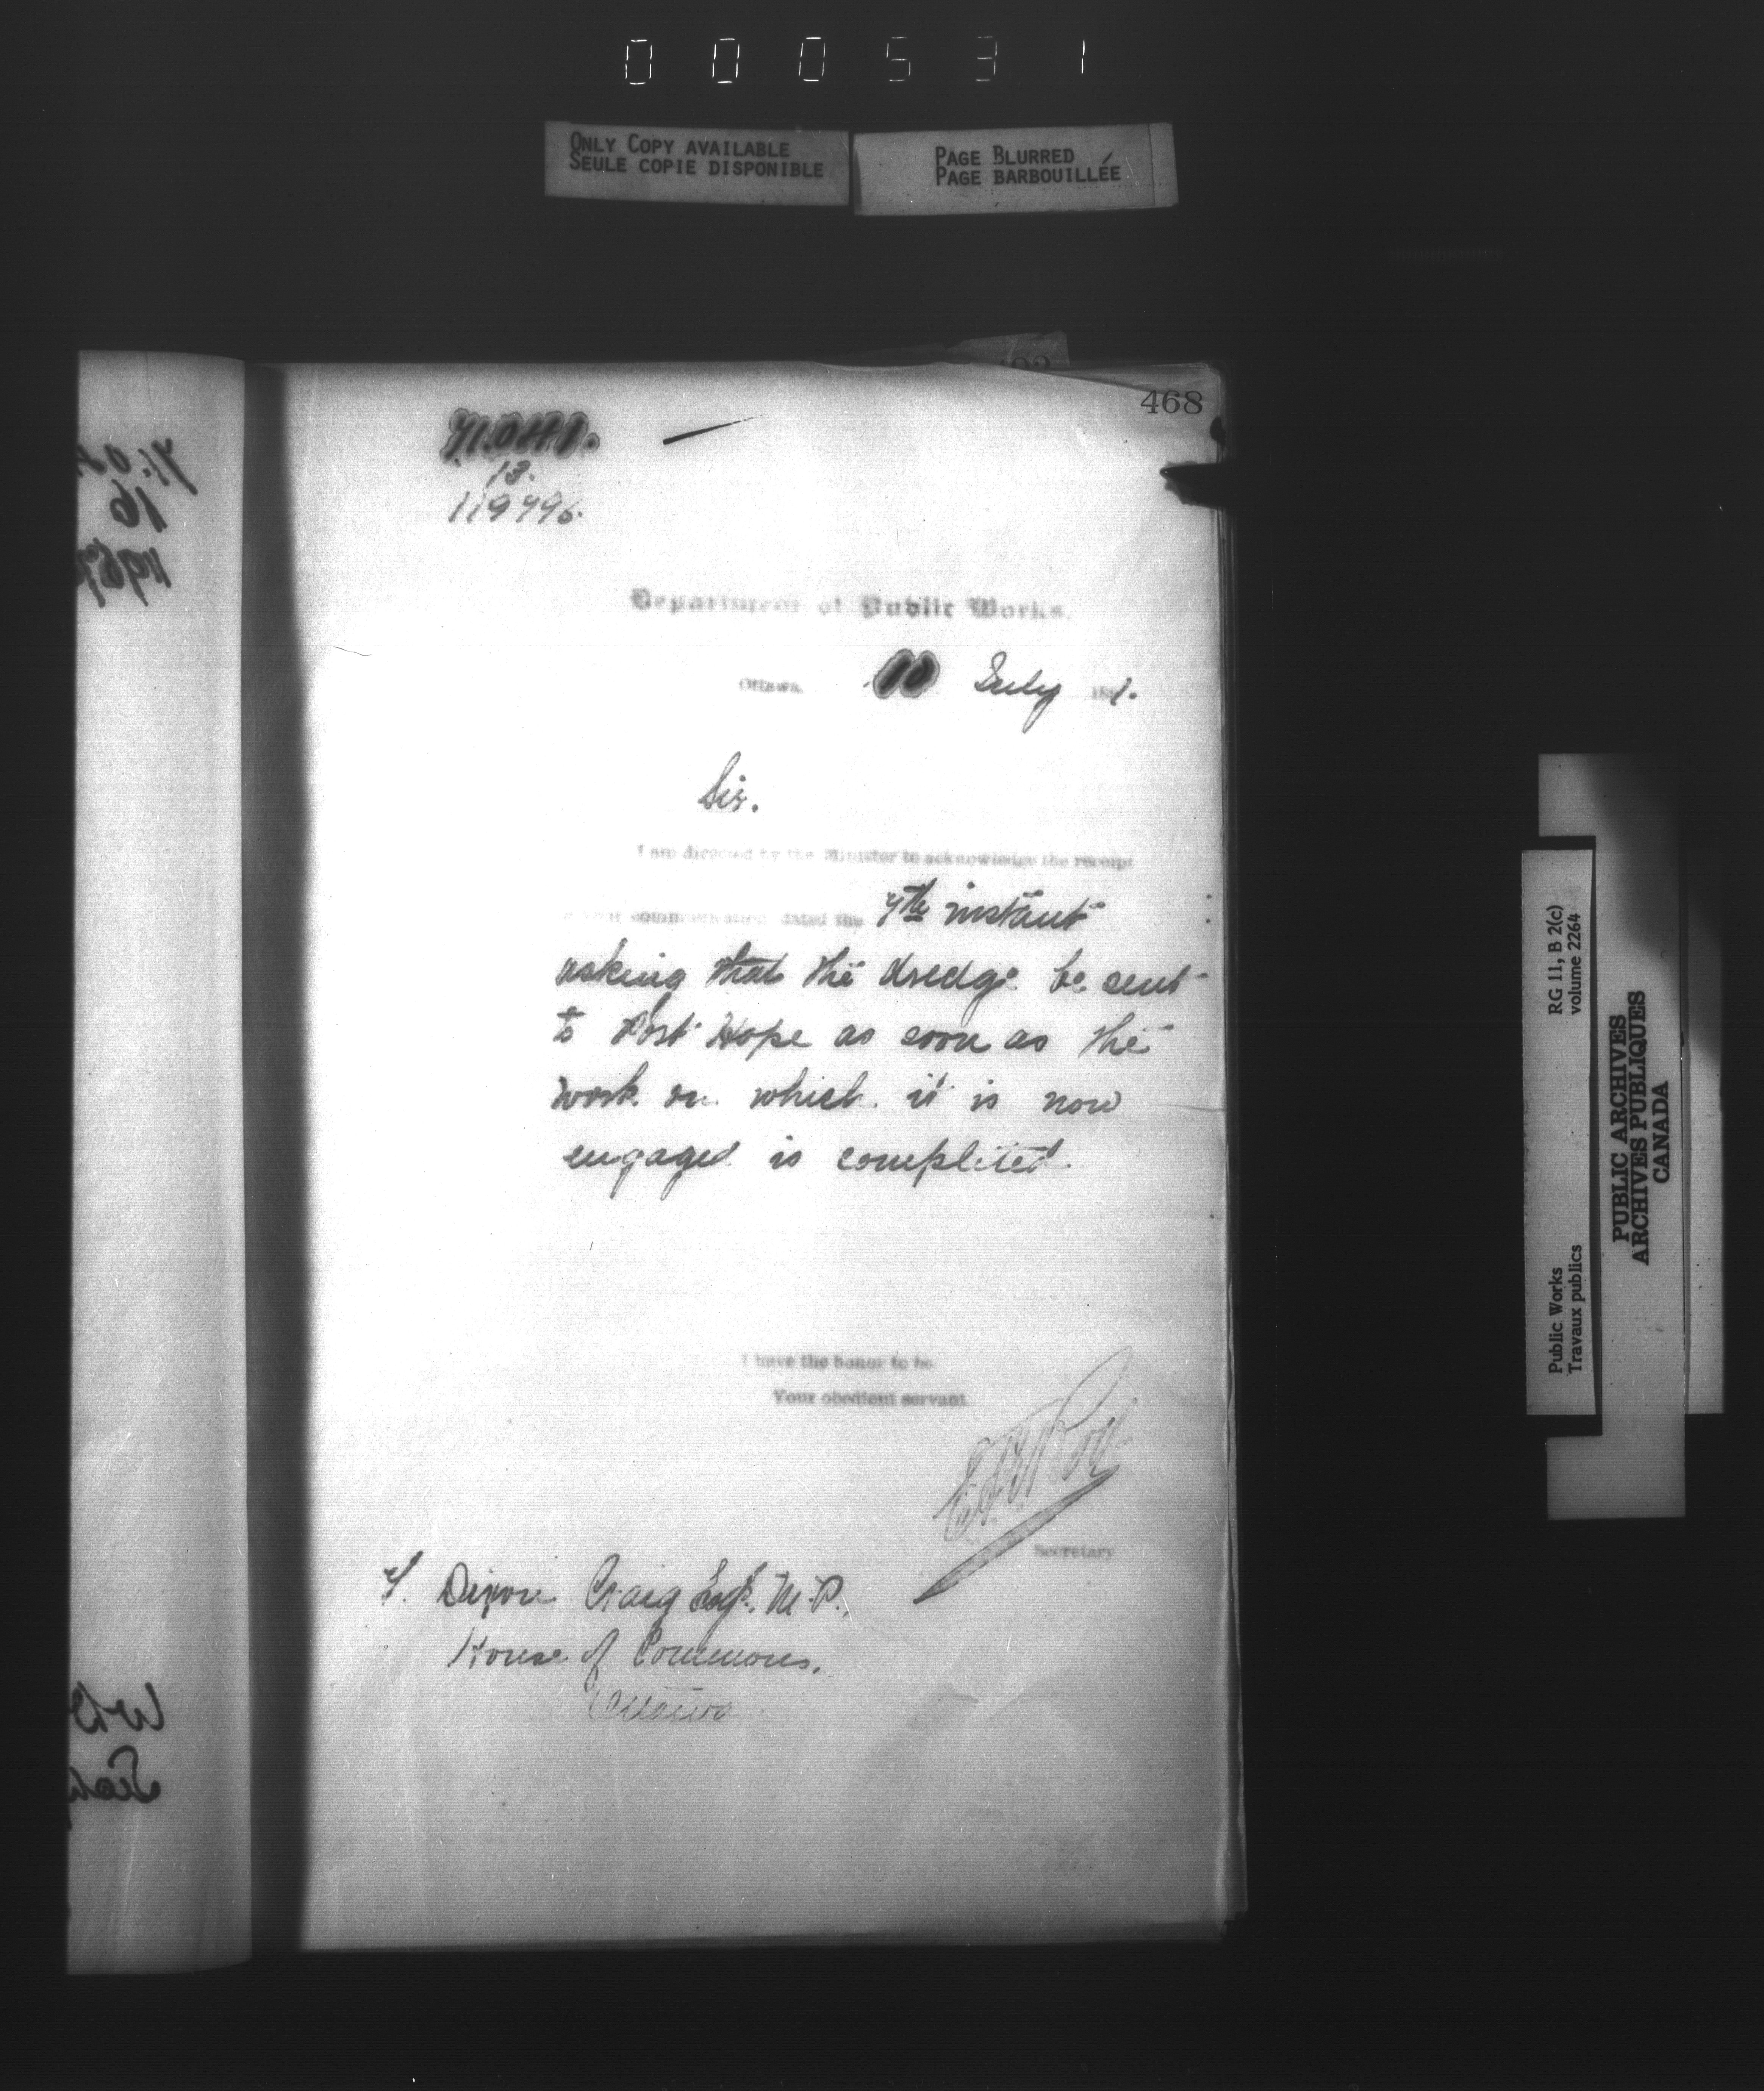 000531
ONLY COPY AVAILABLE
SEULE COPIE DISPONIBLE
PAGE BLURRED
PAGE BARBOUILLÉE
468
13.
119796.
Department of Public Works.
Ottawa, 10 July 1891.
Sir.
I am directed by the Minister to acknowledge the receipt
of your communication dated the 7th instant
asking that the dredge be sent
to Port Hope as soon as the
work on which it is now
engaged is completed.
I have the honor to be
Your obedient servant
Secretary
T. Dixon Craig Esq. M.P.,
House of Commons,
Ottawa
Public Works
Travaux publics
RG 11, B 2(c)
volume 2264
PUBLIC ARCHIVES
ARCHIVES PUBLIQUES
CANADA